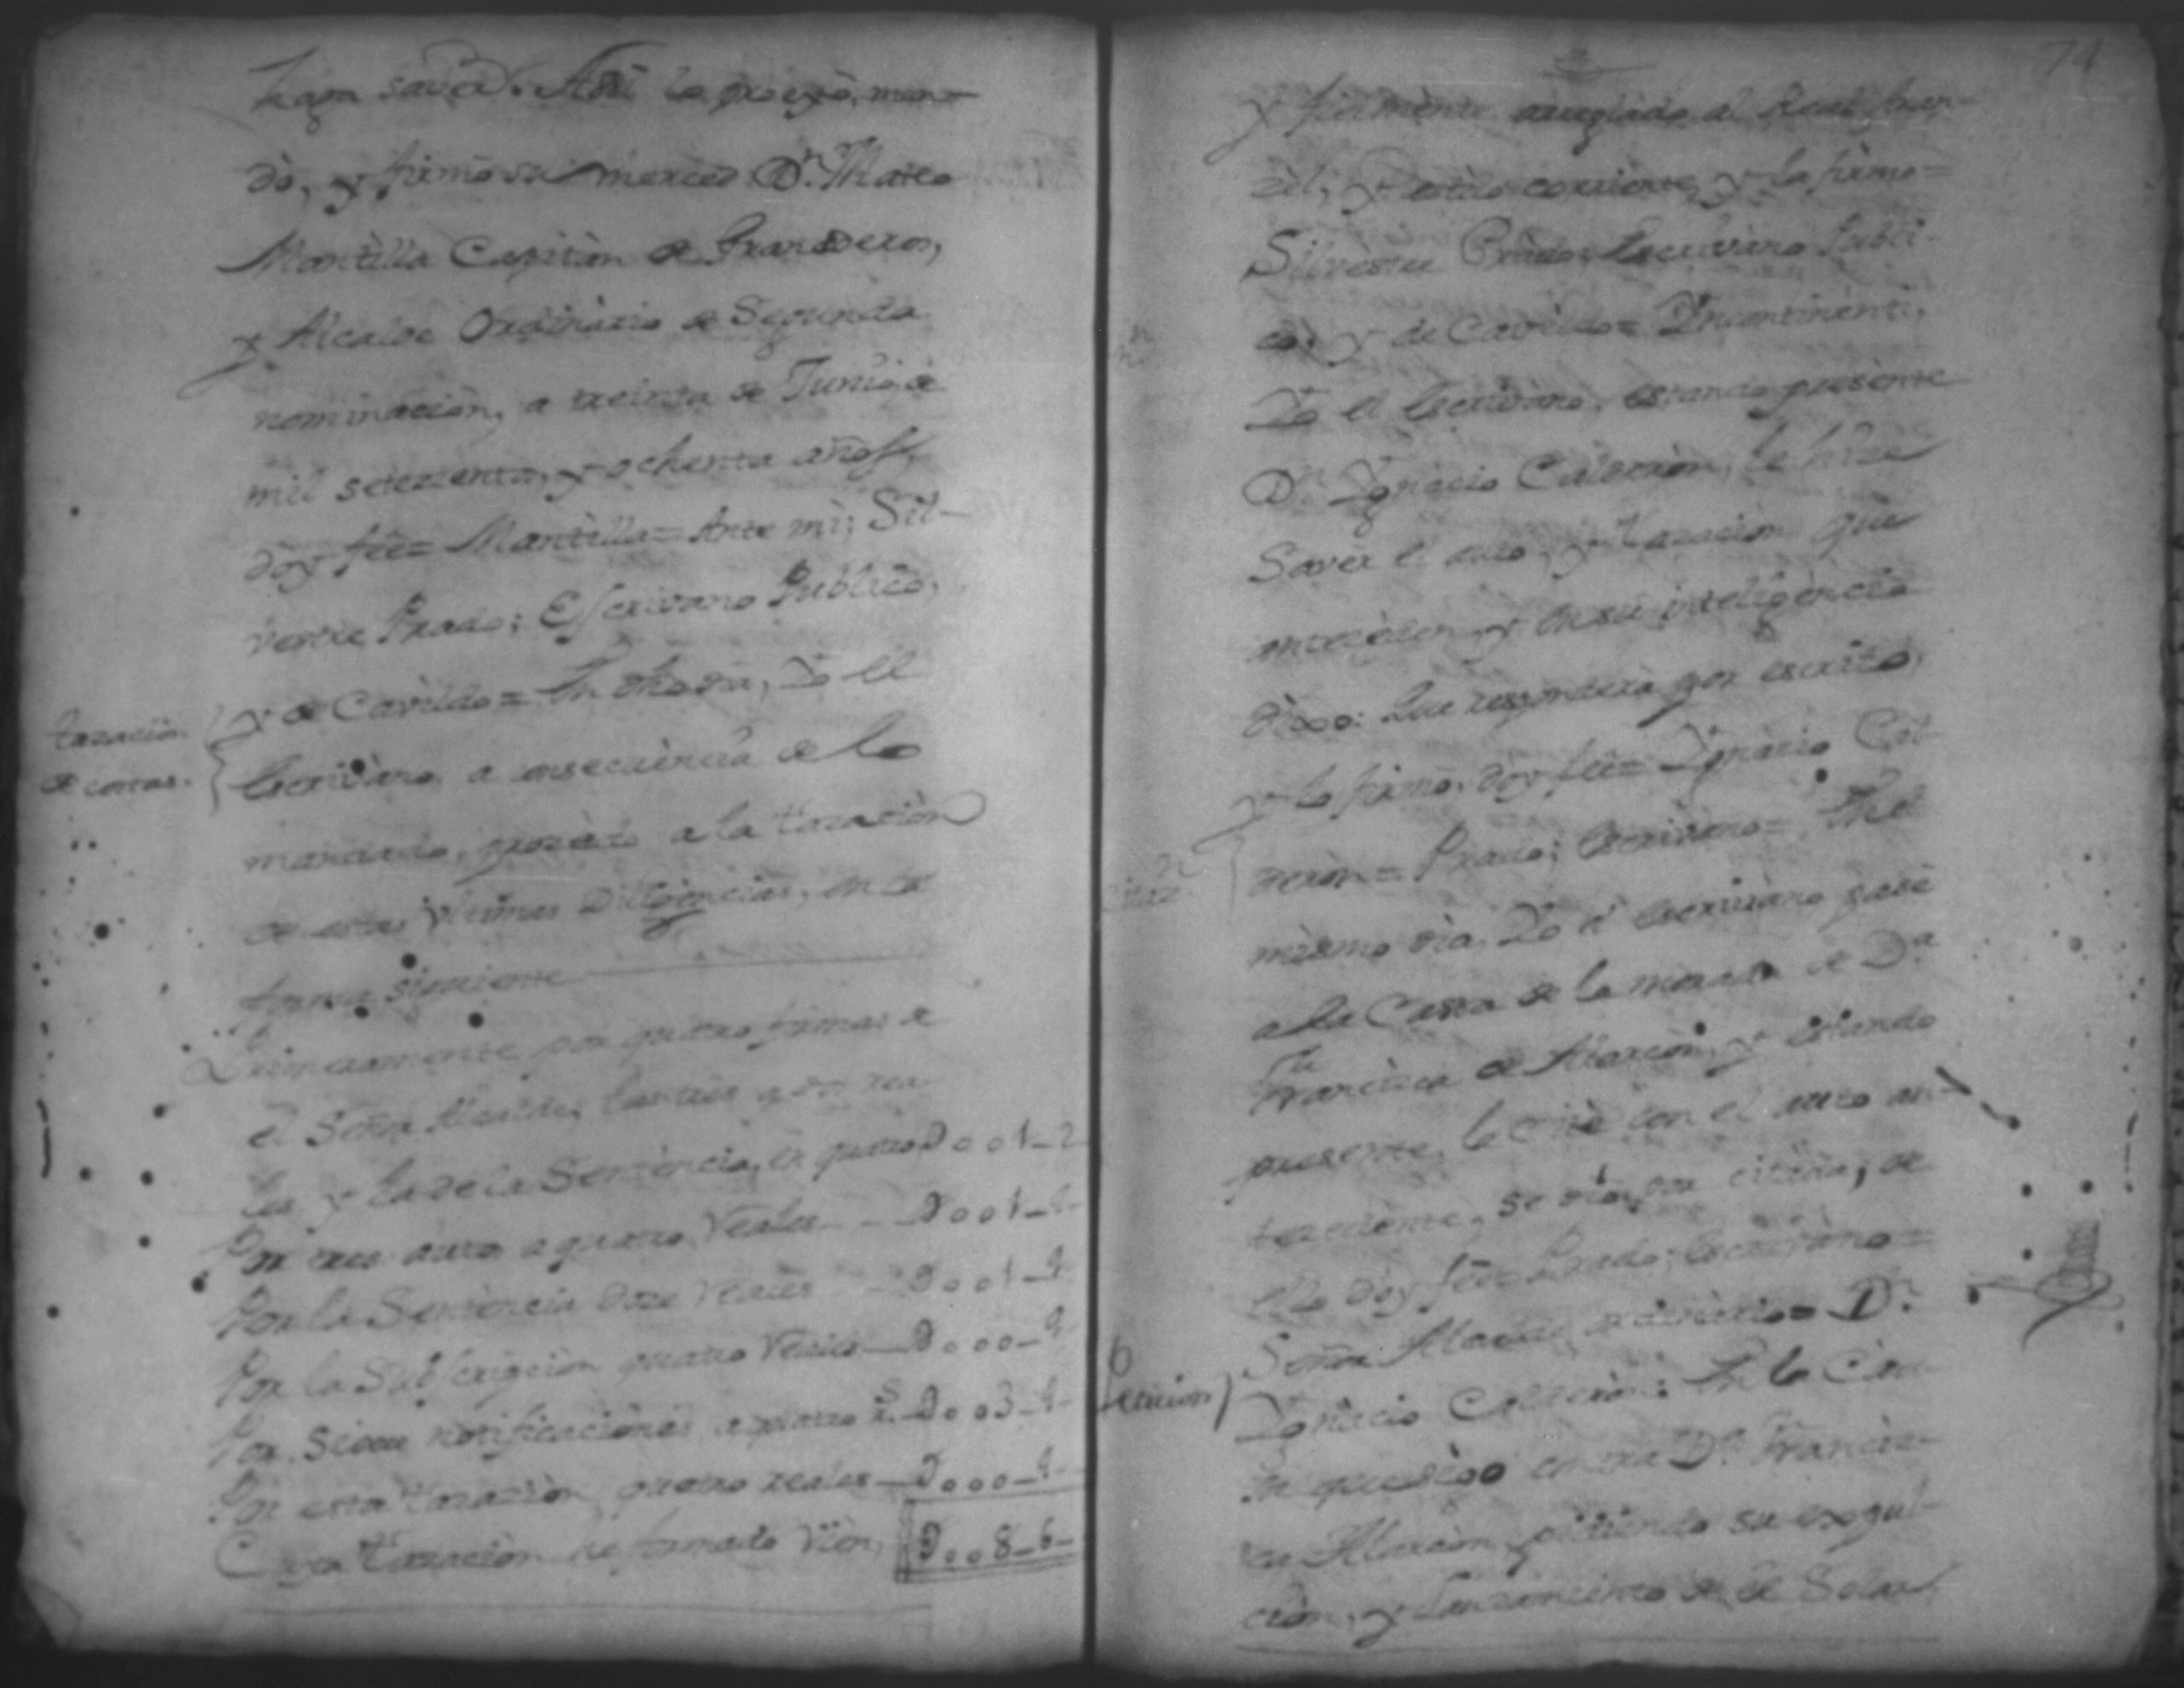 haga saver. Assi lo proveyó, man-
dò, y firmò su merced Dn. Matheo
Mantilla Capitàn de Granaderos,
y Alcalde Ordinàrio de Segunda
nominaciòn, a treinta de Junio de
mil setezientos, y ochenta años,
doy feè= Mantilla= Ante mi; Sil-
vestre Prado; Escrivano Publico,
y de Cavildo= En dho dia, Yo el
tazaciòn
de costas.
Escrivano, a consecuencia de lo
mandado, procedo a la tazaciòn
de estas ultimas Diligèncias, en la
forma siguiente
Primeramente por quatro firmas de
el Señor Alcalde, las tres a dos rea-
les y la de la Sentència, en quatro D001-2
Por tres autos a quatro reales D001-4
Por la Sentencia doze reales D001-4
Por la Subscripciòn quatro reales D000-4
Por siete notificaciònes a quatro rs. D003-4
Por esta tazaciòn quatro reales D000-4
Cuya tazaciòn he formado vièn, D008-6
74
y fielmente arreglado al Real Aran-
zèl, y estilo corriente, y lo firmo=
Silvestre Prado; Escrivano Publi-
co, y de Cavildo= Yncontinenti,
Yo el Escrivano, estando presente
Dn. Ygnacio Calderòn, le hize
Saver el auto, y tazaciòn que
anteceden, y en su inteligencia
dixo: Que responderà por escrito,
y lo firmò, doy feè= Ygnacio Cal-
deròn= Prado; Escrivano= En el
Citaz.n
mismo dia, Yo el Escrivano pasè
a la Cassa de la morada de Da.
Francisca de Alarcòn, y estando
presente, le citè con el auto an-
tecedente, se diò por citàda, de
ello doy feè= Prado; Escrivano=
Señor Alcalde ordinàrio= Dn.
Peticion
Ygnacio Calderòn: En la Cau-
sa que sigo contra Da. Francis-
ca Alarcòn pidiendo su expul-
ciòn, y lanzamiento de el Solar